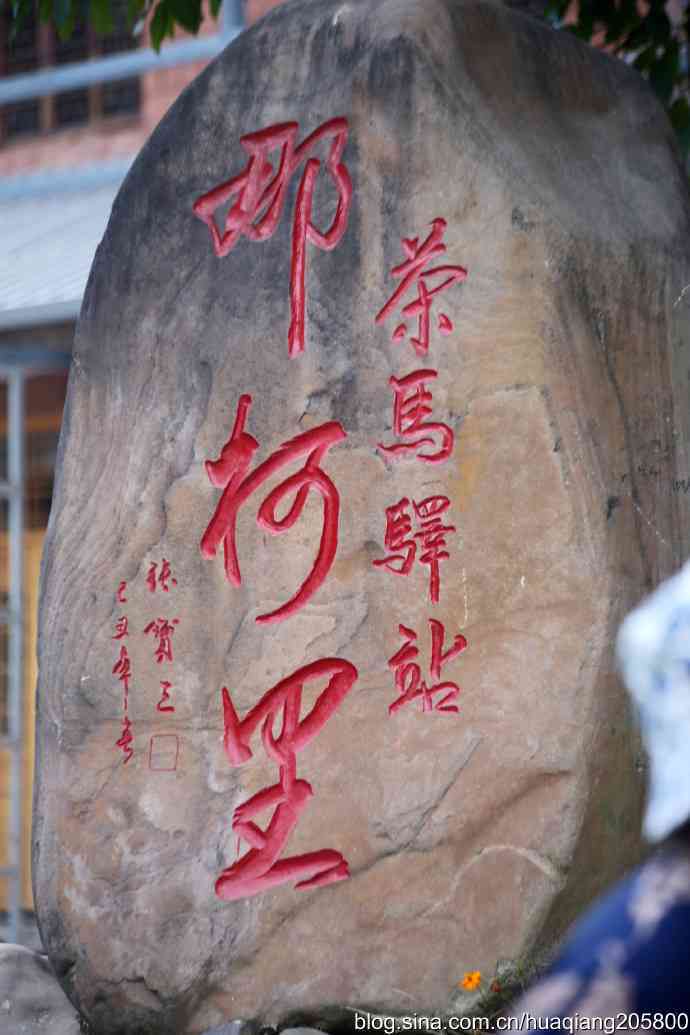 茶馬驛站
那柯里
張寶三
己丑年春
blog.sina.com.cn/huaqiang205800